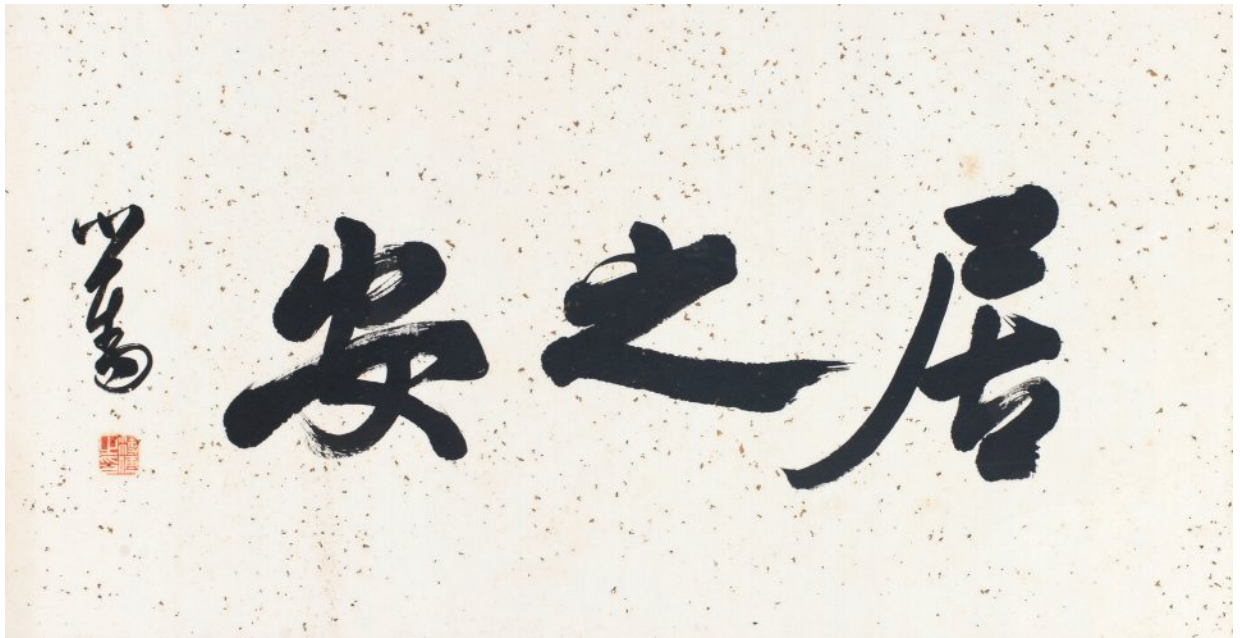 居之安
心畬